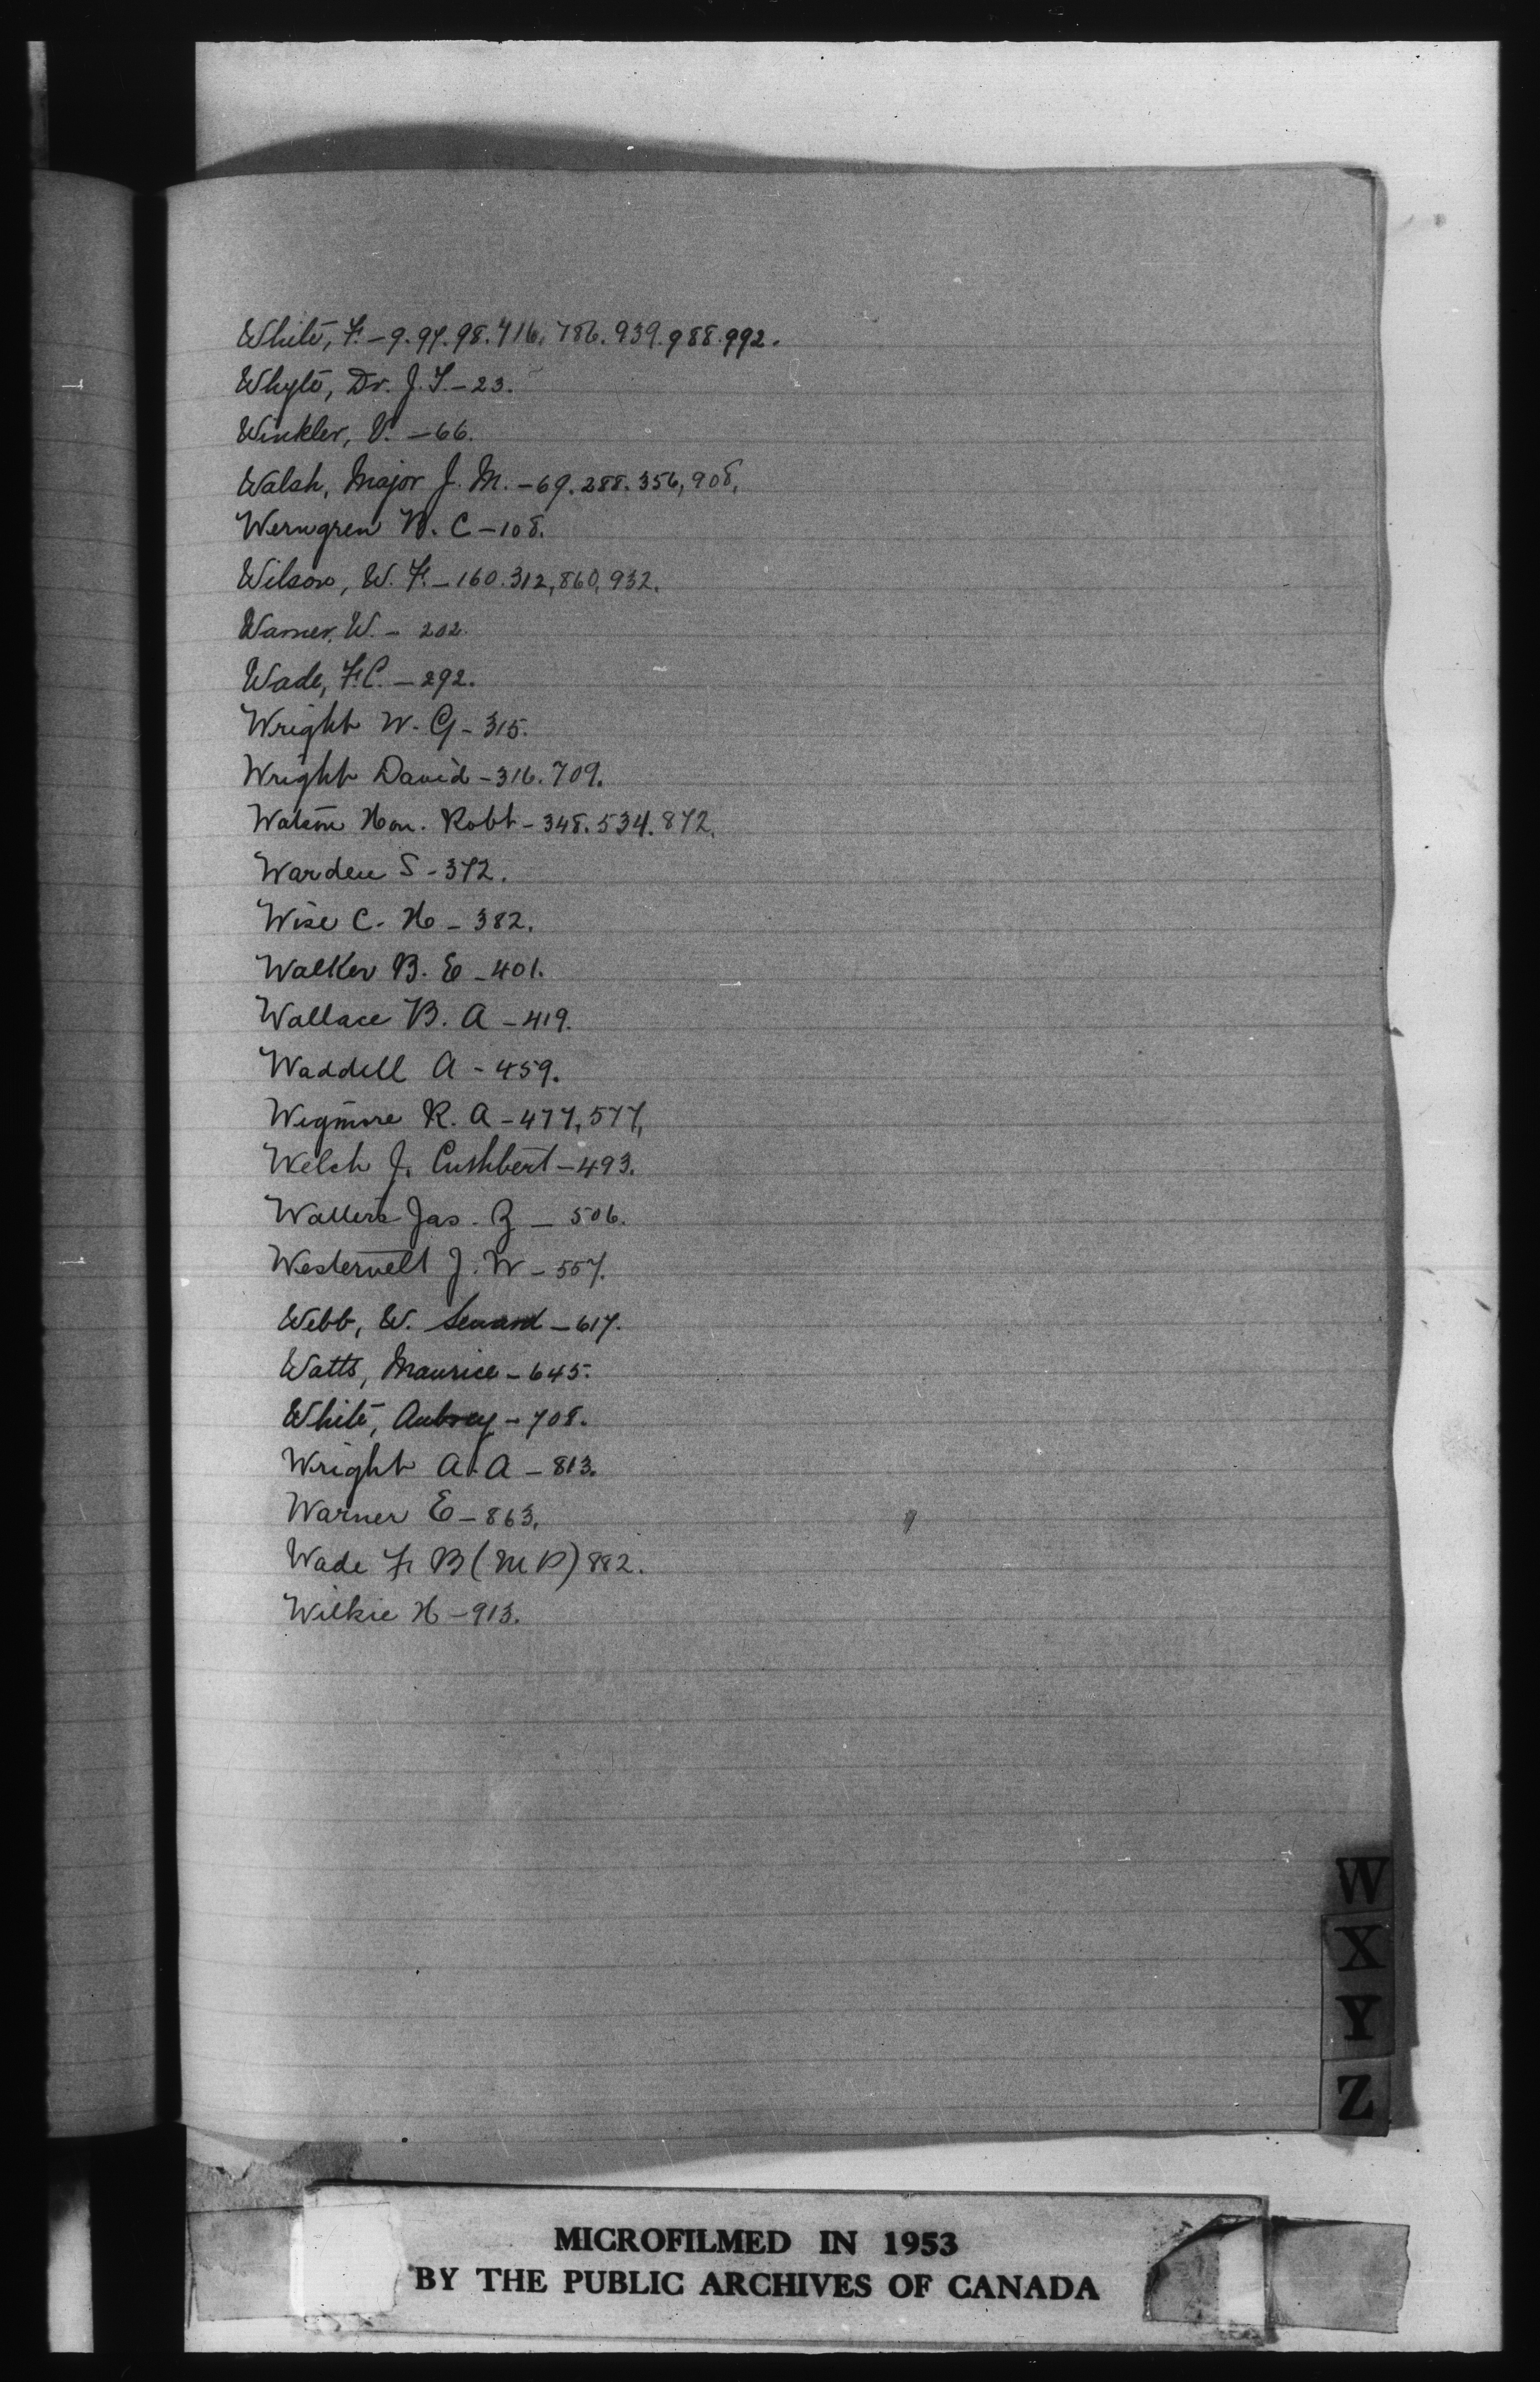 White, F. - 9. 97. 98. 716. 786. 939. 988. 992.
Whyte, Dr. J. T. - 23.
Winkler, V. - 66.
Walsh, Major J. M. - 69. 288. 356, 908.
Werngren B. C - 108.
Wilson, W. F. - 160. 312, 860, 932.
Warner, W. - 202.
Wade, F.C. - 292.
Wright W. G - 315.
Wright David - 316. 709.
Watson Hon. Robt - 348. 534. 872.
Warden S - 372.
Wise C. H - 382.
Walker B. E - 401.
Wallace B. A - 419.
Waddell A - 459.
Wigmore R. A - 477, 577,
Welch J. Cuthbert - 493.
Jas. - 506.
Westervelt J. W - 557.
Webb, W. Seward - 617.
Watts, Maurice - 645.
White, Aubrey - 708.
Wright A. A - 813.
Warner E - 863.
Wade F. B (M P) 882.
Wilkie H - 913.
W
X
Y
Z
MICROFILMED IN 1953
BY THE PUBLIC ARCHIVES OF CANADA